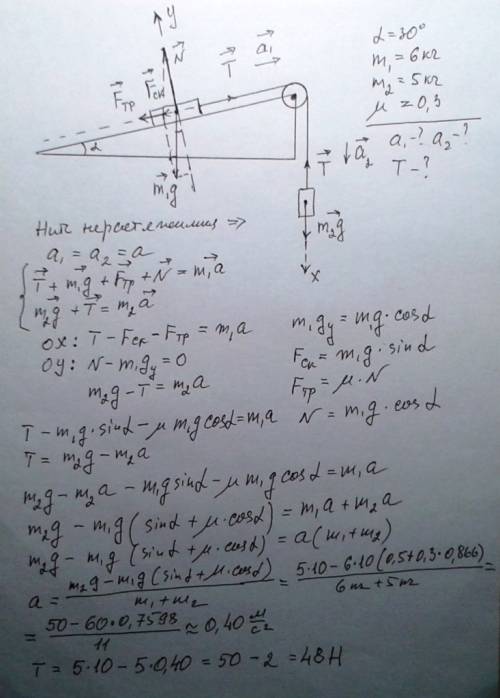 y
N
T a₁
Fск
Fтр
α
m₁g
T
a₂
m₂g
x
α = 30°
m₁ = 6 кг
m₂ = 5 кг
μ = 0,3
a₁-? a₂-?
T-?
Нить нерастяжима =>
a₁ = a₂ = a
T + m₁g + Fтр + N = m₁a
m₂g + T = m₂a
OX: T - Fск - Fтр = m₁a
OY: N - m₁gy = 0
m₂g - T = m₂a
m₁gy = m₁g · cosα
Fск = m₁g · sinα
Fтр = μ · N
N = m₁g · cosα
T - m₁g · sinα - μ m₁g cosα = m₁a
T = m₂g - m₂a
m₂g - m₂a - m₁g sinα - μ m₁g cosα = m₁a
m₂g - m₁g (sinα + μ · cosα) = m₁a + m₂a
m₂g - m₁g (sinα + μ · cosα) = a(m₁ + m₂)
a = (m₂g - m₁g (sinα + μ · cosα)) / (m₁ + m₂) = (5·10 - 6·10 (0,5 + 0,3·0,866)) / (6 + 5) =
= (50 - 60 · 0,7598) / 11 ≈ 0,40 м/с²
T = 5·10 - 5·0,40 = 50 - 2 = 48 Н